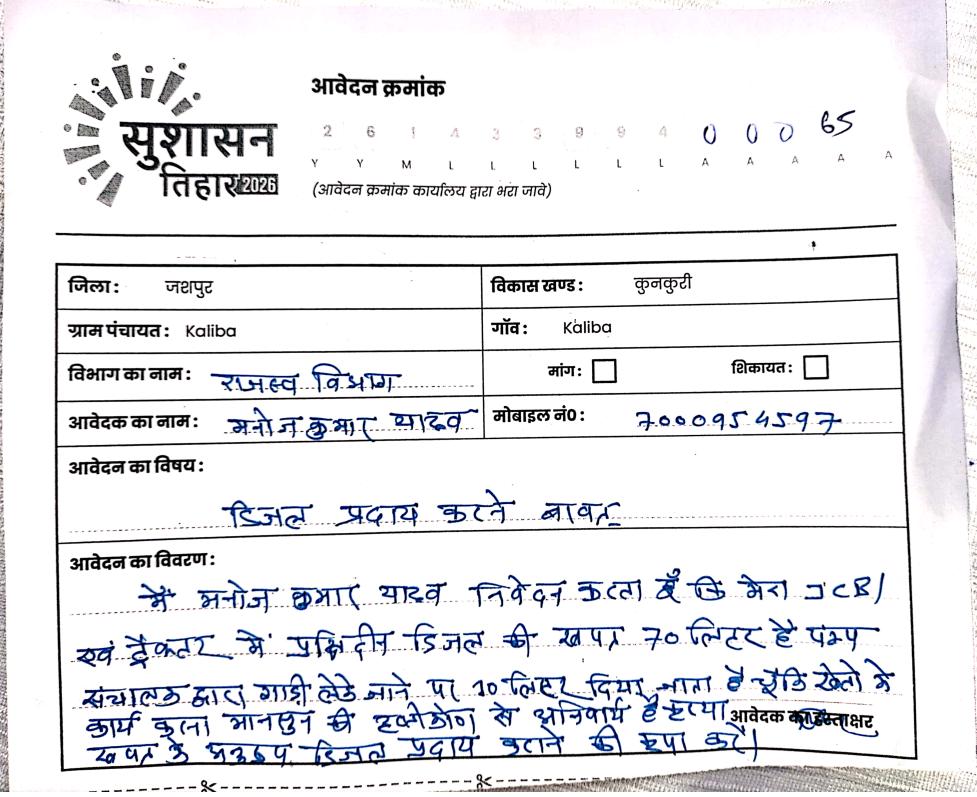 सुशासन
तिहार 2026
आवेदन क्रमांक
2 6 1 4 3 3 9 9 4 0 0 0 65
Y Y M L L L L L L A A A A A
(आवेदन क्रमांक कार्यालय द्वारा भरा जावे)
जिला: जशपुर विकास खण्ड: कुनकुरी
ग्राम पंचायत: Kaliba गॉव: Kaliba
विभाग का नाम: राजस्व विभाग मांग: शिकायत:
आवेदक का नाम: मनोज कुमार यादव मोबाइल नं0: 7000954597
आवेदन का विषय:
डिजल प्रदाय करने बावत्
आवेदन का विवरण:
मैं मनोज कुमार यादव निवेदन करता हूँ कि मेरा JCB/
एवं ट्रैक्टर में प्रतिदीन डिजल की खपत 70 लिटर है पम्प
संचालक द्वारा गाड़ी लेके जाने पर 10 लिटर दिया जाता है चूँकि खेतो के
कार्य करना मानसुन की दृष्टीकोण से अनिवार्य है कृप्या
आवेदक का हस्ताक्षर
खपत के अनुरूप डिजल प्रदाय कराने की कृपा करें।